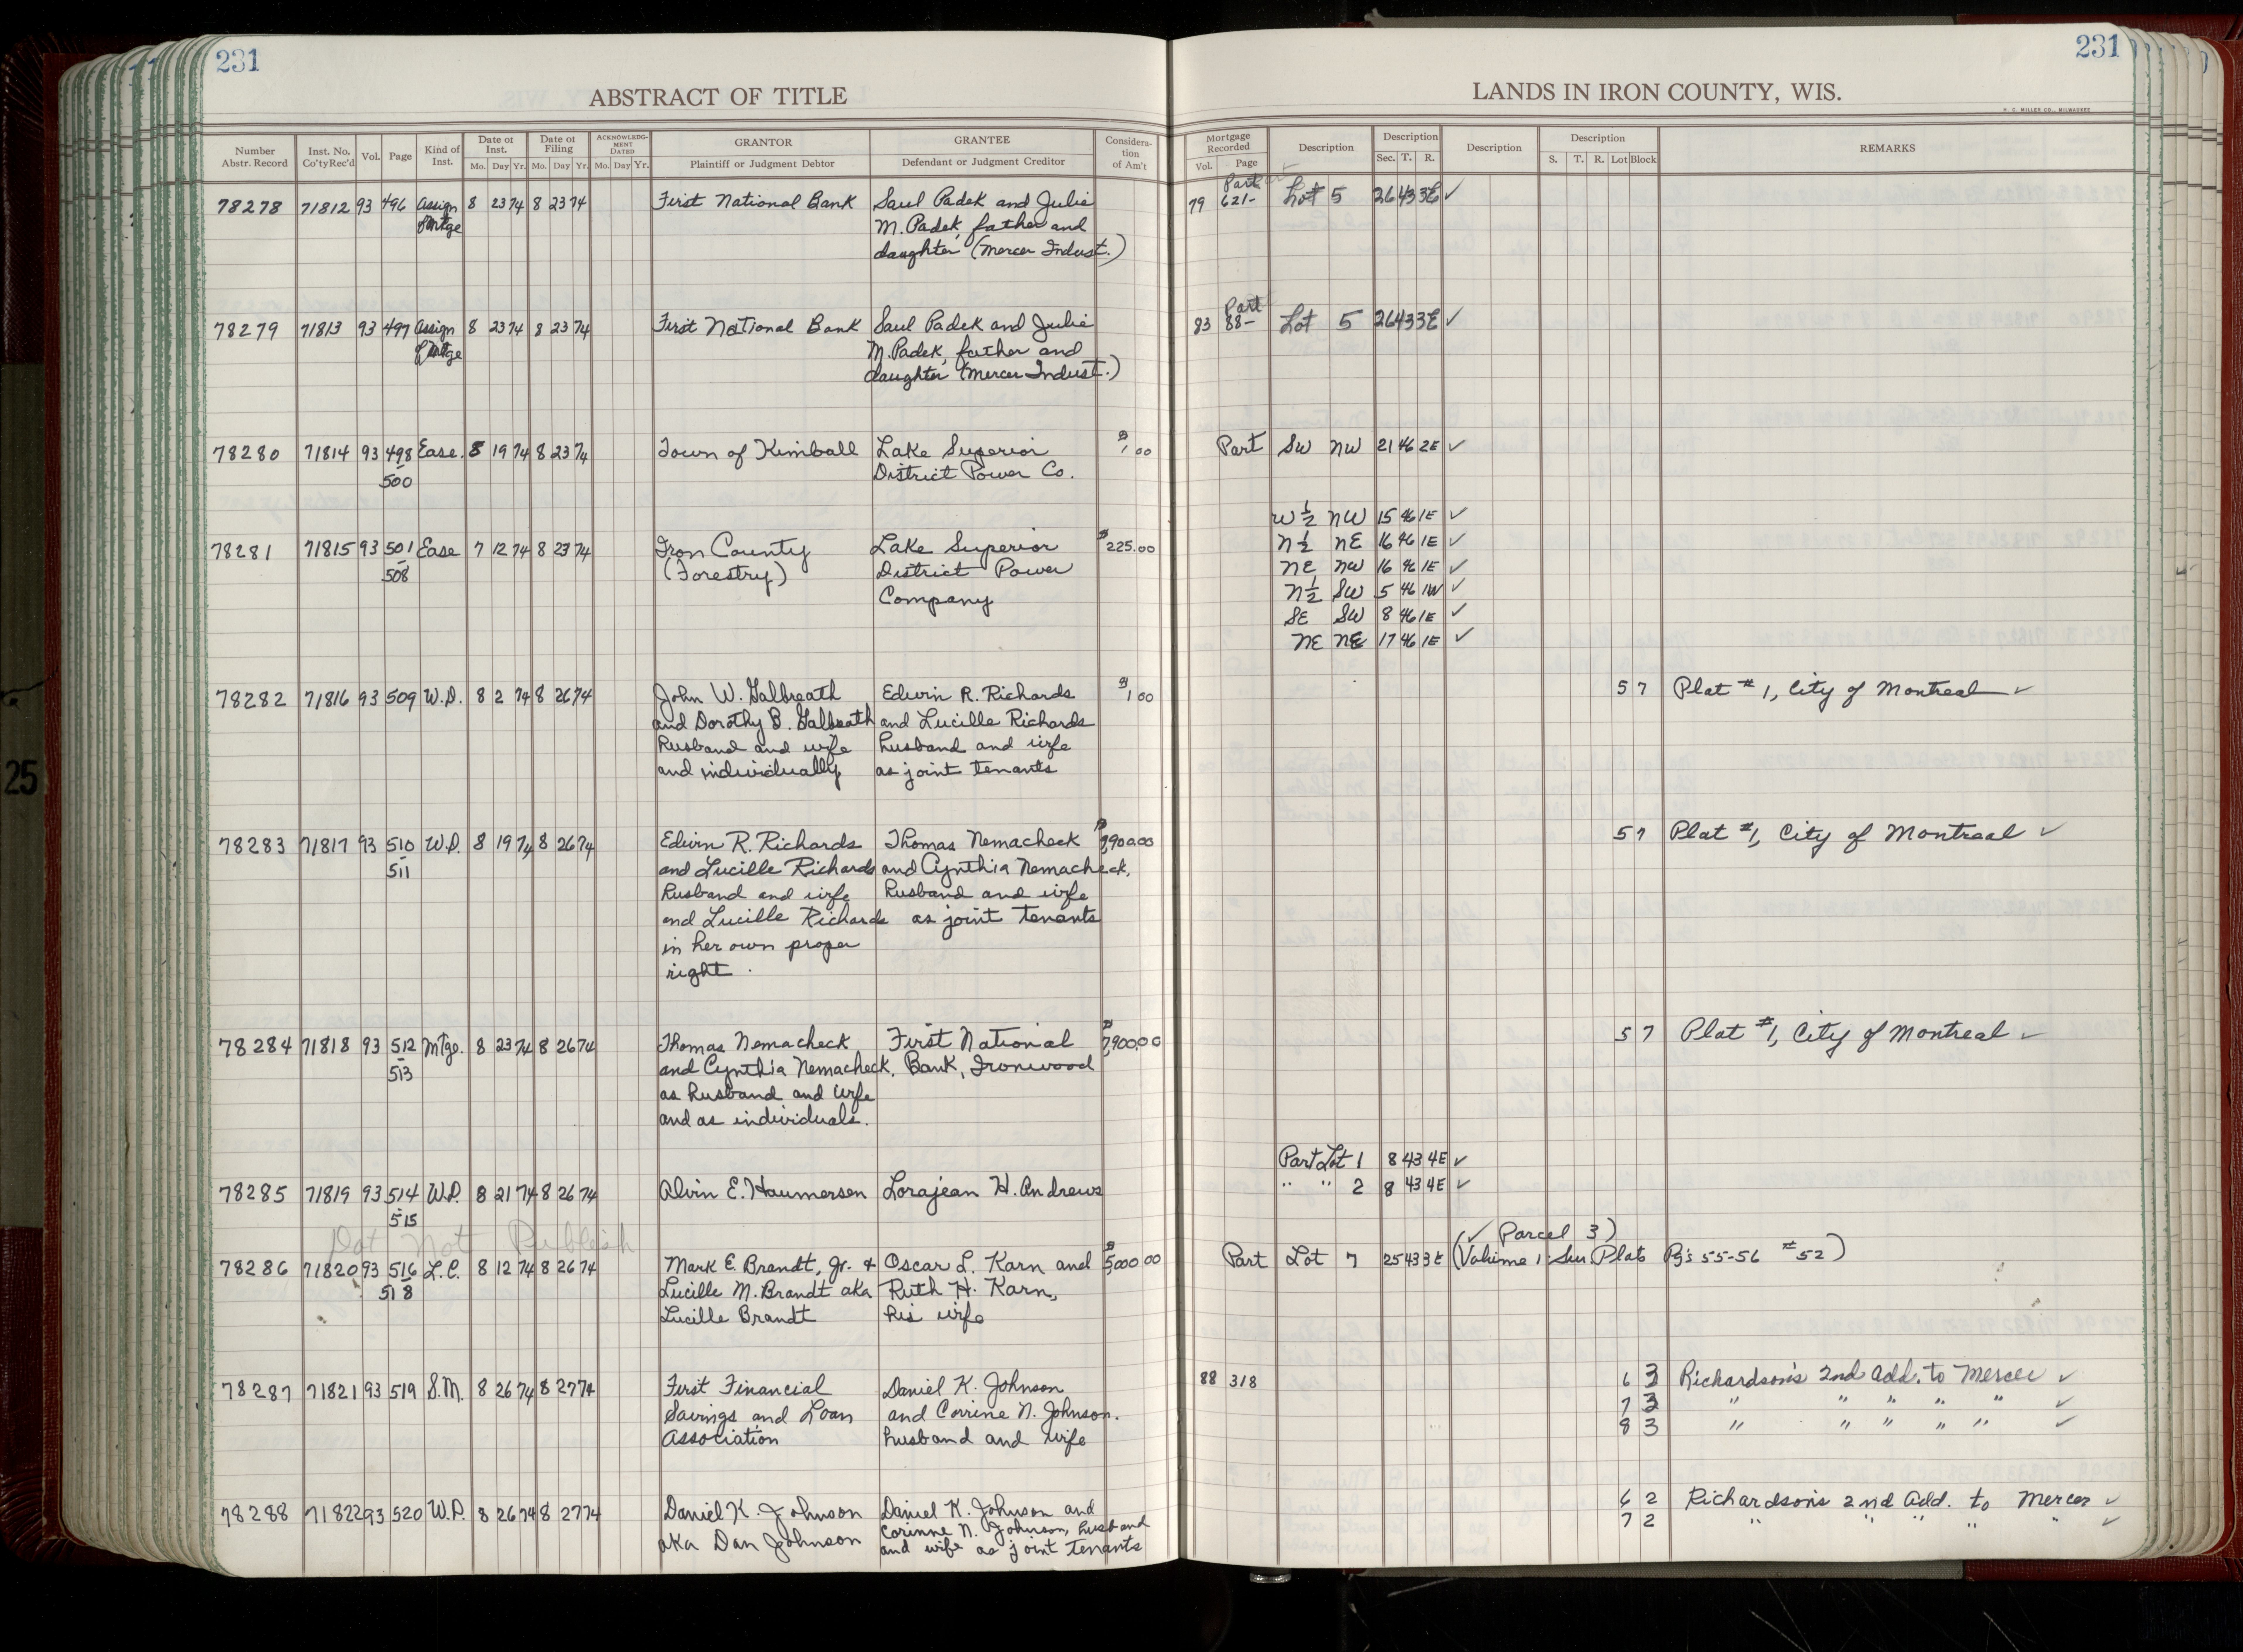 231
ABSTRACT OF TITLE
Number Abstr. Record Inst. No. Co'ty Rec'd Vol. Page Kind of Inst. Date of Inst. Mo. Day Yr. Date of Filing Mo. Day Yr. ACKNOWLEDGMENT DATED Mo. Day Yr. GRANTOR Plaintiff or Judgment Debtor GRANTEE Defendant or Judgment Creditor Consideration of Am't
78278 71812 93 496 Assign 8 23 74 8 23 74 First National Bank Saul Padek and Julie
of Mtge M. Padek, father and
daughter (Mercer Indust.)
78279 71813 93 497 Assign 8 23 74 8 23 74 First National Bank Saul Padek and Julie
of Mtge M. Padek, father and
daughter (Mercer Indust.)
78280 71814 93 498 Ease. 8 19 74 8 23 74 Town of Kimball Lake Superior $1.00
- 500 District Power Co.
78281 71815 93 501 Ease 7 12 74 8 23 74 Iron County Lake Superior $225.00
- 508 (Forestry) District Power
Company
78282 71816 93 509 W.D. 8 2 74 8 26 74 John W. Galbreath Edwin R. Richards $1.00
and Dorothy B. Galbreath and Lucille Richards
husband and wife husband and wife
and individually as joint tenants
78283 71817 93 510 W.D. 8 19 74 8 26 74 Edwin R. Richards Thomas Nemacheck
- 511 and Lucille Richards and Cynthia Nemacheck,
husband and wife husband and wife
and Lucille Richards as joint tenants
in her own proper
right.
78284 71818 93 512 Mtge. 8 23 74 8 26 74 Thomas Nemacheck First National $7,900.00
- 513 and Cynthia Nemacheck, Bank, Ironwood
as husband and wife
and as individuals.
78285 71819 93 514 W.D. 8 21 74 8 26 74 Alvin E. Haumersen Lorajean H. Andrews
- 515
Dot Not Publish
78286 71820 93 516 L.C. 8 12 74 8 26 74 Mark E. Brandt, Jr. + Oscar L. Karn and $5,000.00
- 518 Lucille M. Brandt aka Ruth H. Karn,
Lucille Brandt his wife
78287 71821 93 519 S.M. 8 26 74 8 27 74 First Financial Daniel K. Johnson
Savings and Loan and Corrine N. Johnson.
Association husband and wife
78288 71822 93 520 W.D. 8 26 74 8 27 74 Daniel K. Johnson Daniel K. Johnson and
aka Dan Johnson Corinne N. Johnson, husband
and wife as joint tenants
231
LANDS IN IRON COUNTY, WIS.
H. C. MILLER CO., MILWAUKEE
Mortgage Recorded Vol. Page Description Description Sec. T. R. Description Description S. T. R. Lot Block REMARKS
Part
79 621- Lot 5 26 43 3E ✓
Part
83 88- Lot 5 26 43 3E ✓
Part SW NW 21 46 2E ✓
W½ NW 15 46 1E ✓
N½ NE 16 46 1E ✓
NE NW 16 46 1E ✓
N½ SW 5 46 1W ✓
SE SW 8 46 1E ✓
NE NE 17 46 1E ✓
5 7 Plat #1, City of Montreal ✓
5 7 Plat #1, City of Montreal ✓
5 7 Plat #1, City of Montreal ✓
Part Lot 1 8 43 4E ✓
" " 2 8 43 4E ✓
(✓ Parcel 3)
Part Lot 7 25 43 3E (Volume 1 Sur. Plats Pg's 55-56 #52)
88 318 6 3 Richardson's 2nd Add. to Mercer ✓
7 3 " " " " " ✓
8 3 " " " " " ✓
6 2 Richardson's 2nd Add. to Mercer ✓
7 2 " " " " " ✓
25